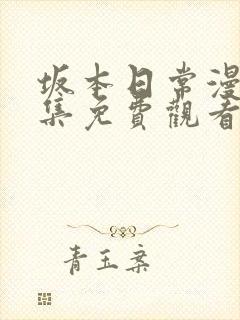 坂本日常漫
集免費觀看
青玉案